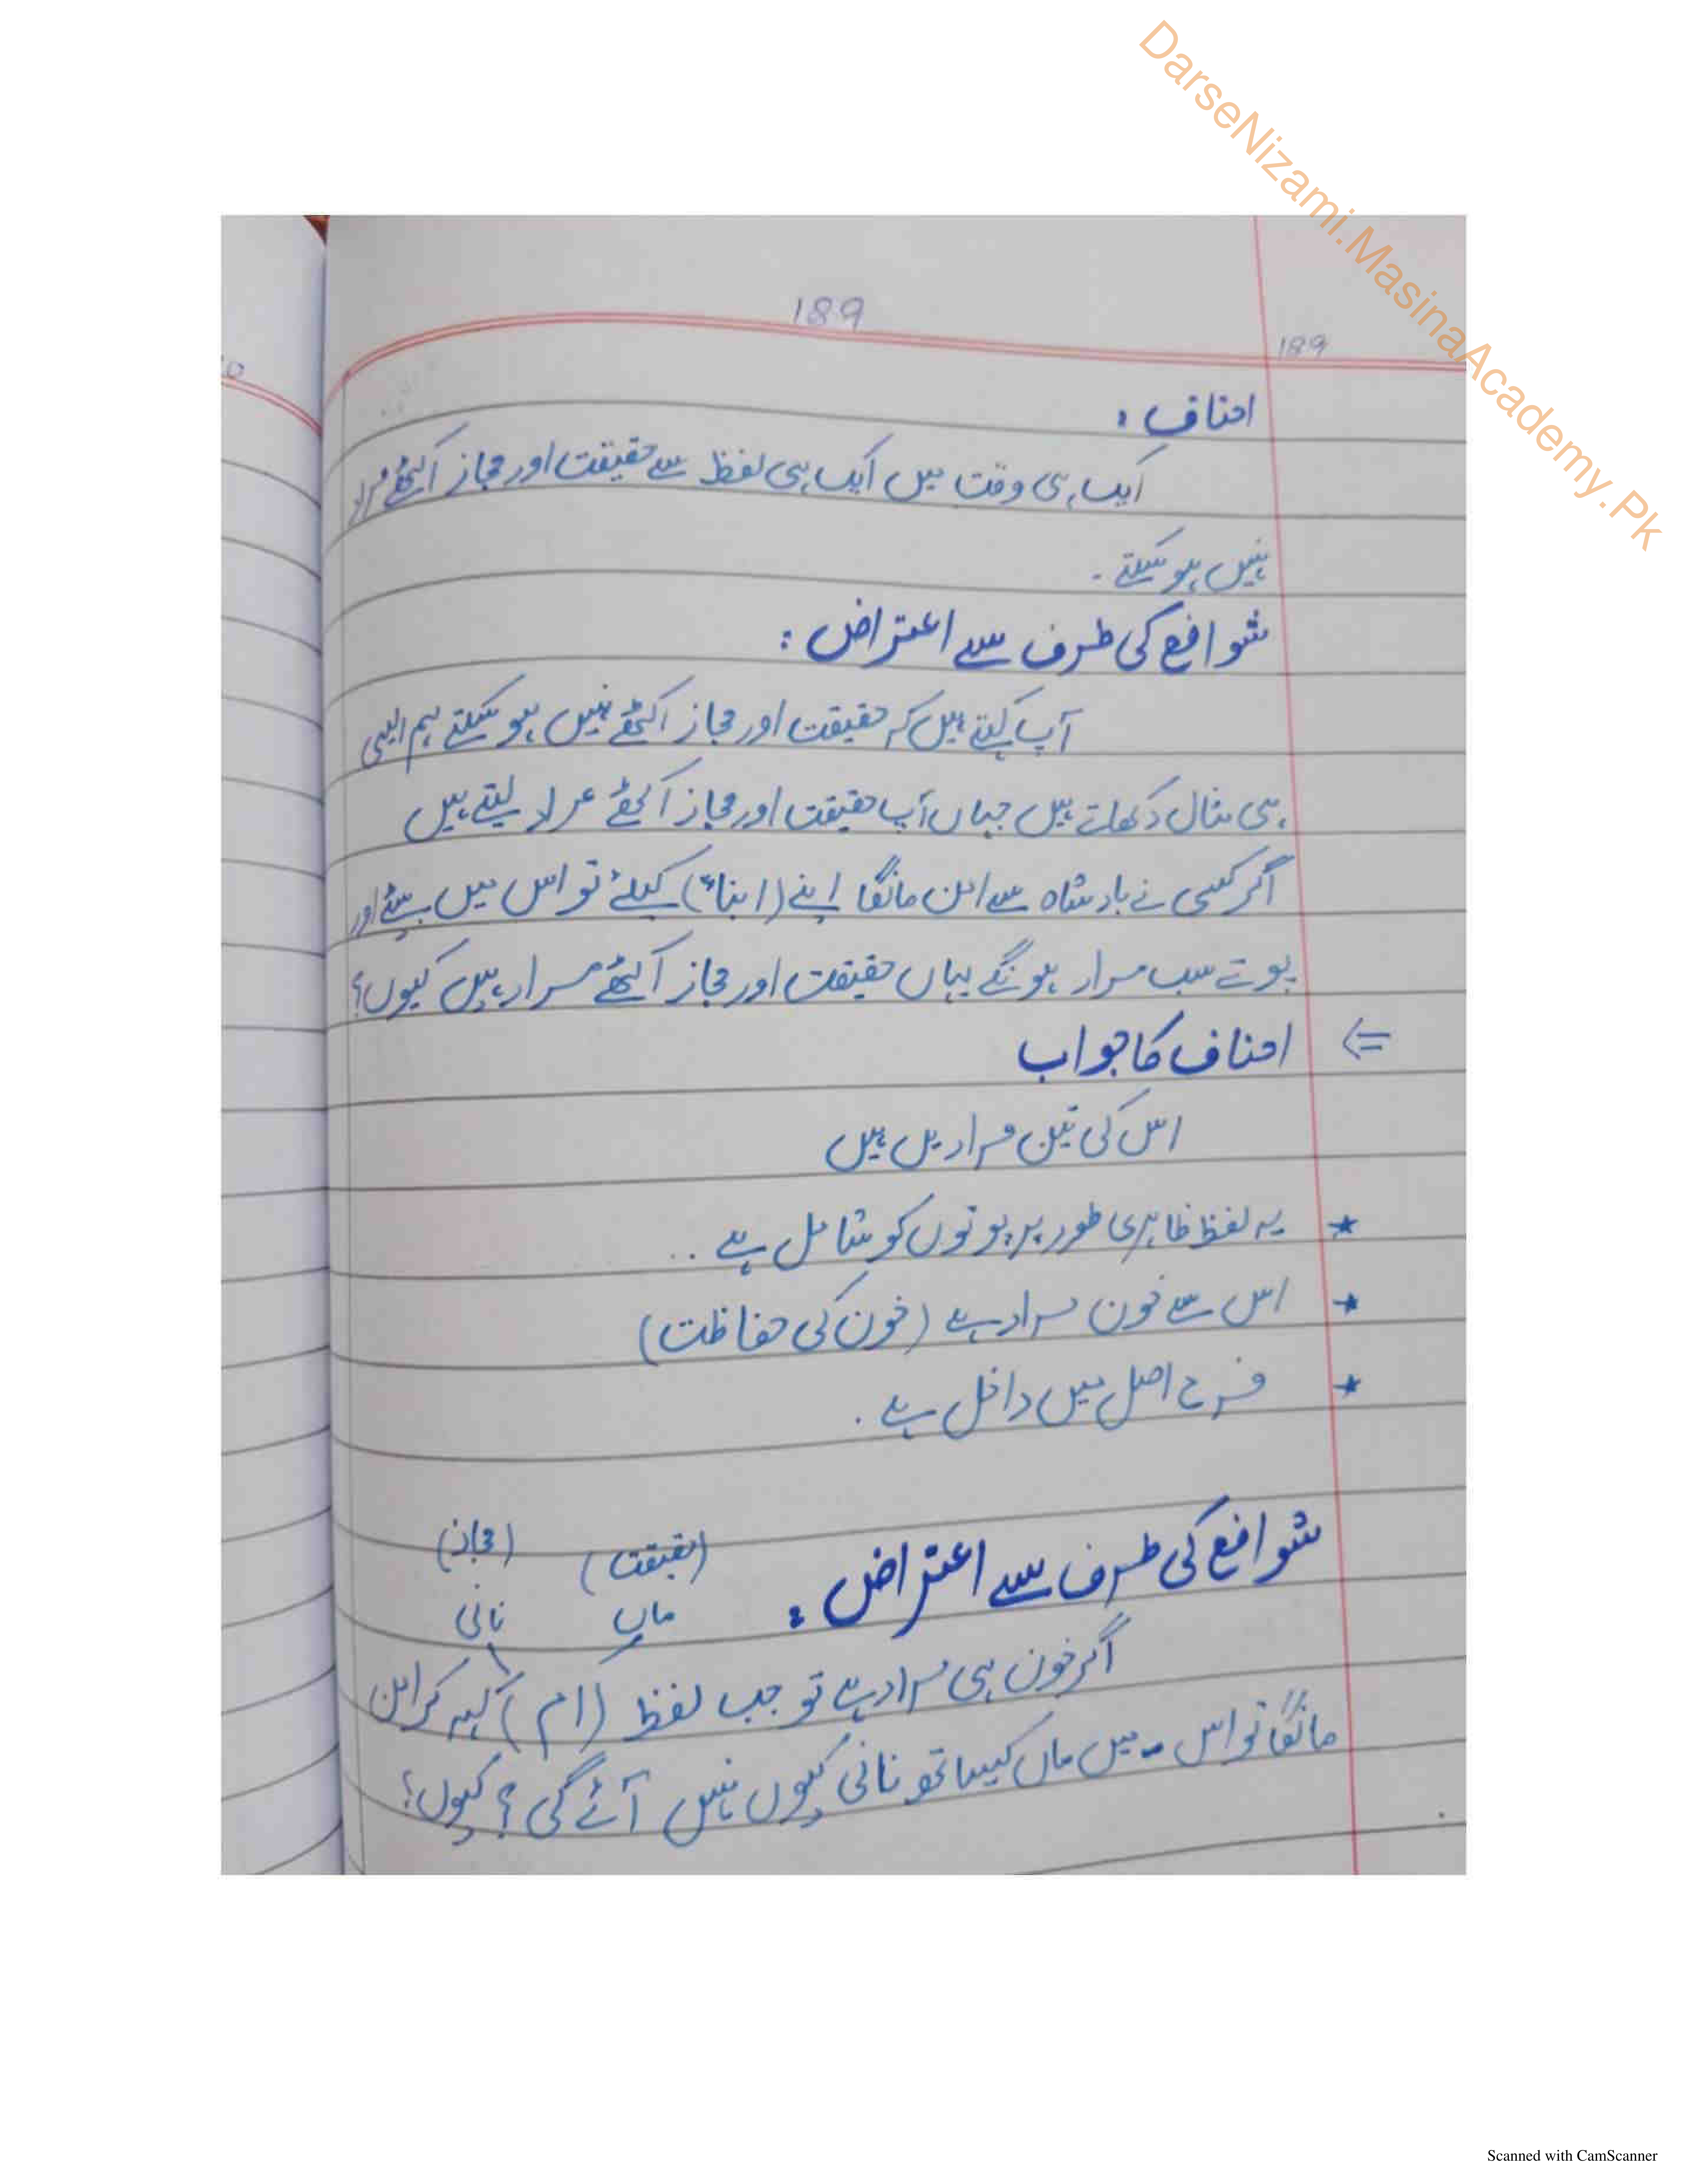 DarseNizami.MasinaAcademy.Pk
189
189
احناف :
ایک ہی وقت میں ایک ہی لفظ سے حقیقت اور مجاز اکٹھے مراد
نہیں ہو سکتے ۔
شوافع کی طرف سے اعتراض :
آپ کہتے ہیں کہ حقیقت اور مجاز اکٹھے نہیں ہو سکتے ہم ایسی
ہی مثال دکھاتے ہیں جہاں آپ حقیقت اور مجاز اکٹھے مراد لیتے ہیں
اگر کسی نے بادشاہ سے امن مانگا اپنے (ابناء) کیلئے تو اس میں بیٹے اور
پوتے سب مراد ہونگے یہاں حقیقت اور مجاز اکٹھے مراد ہیں کیوں؟
<= احناف کا جواب
اس کی تین مرادیں ہیں
★ یہ لفظ ظاہری طور پر پوتوں کو شامل ہے ..
★ اس سے خون مراد ہے (خون کی حفاظت)
★ فرع اصل میں داخل ہے ۔
شوافع کی طرف سے اعتراض : (حقیقت) (مجاز)
ماں نانی
اگر خون ہی مراد ہے تو جب لفظ (ام) کہہ کر امن
مانگا تو اس میں ماں کیساتھ نانی کیوں نہیں آئے گی ؟ کیوں؟
Scanned with CamScanner